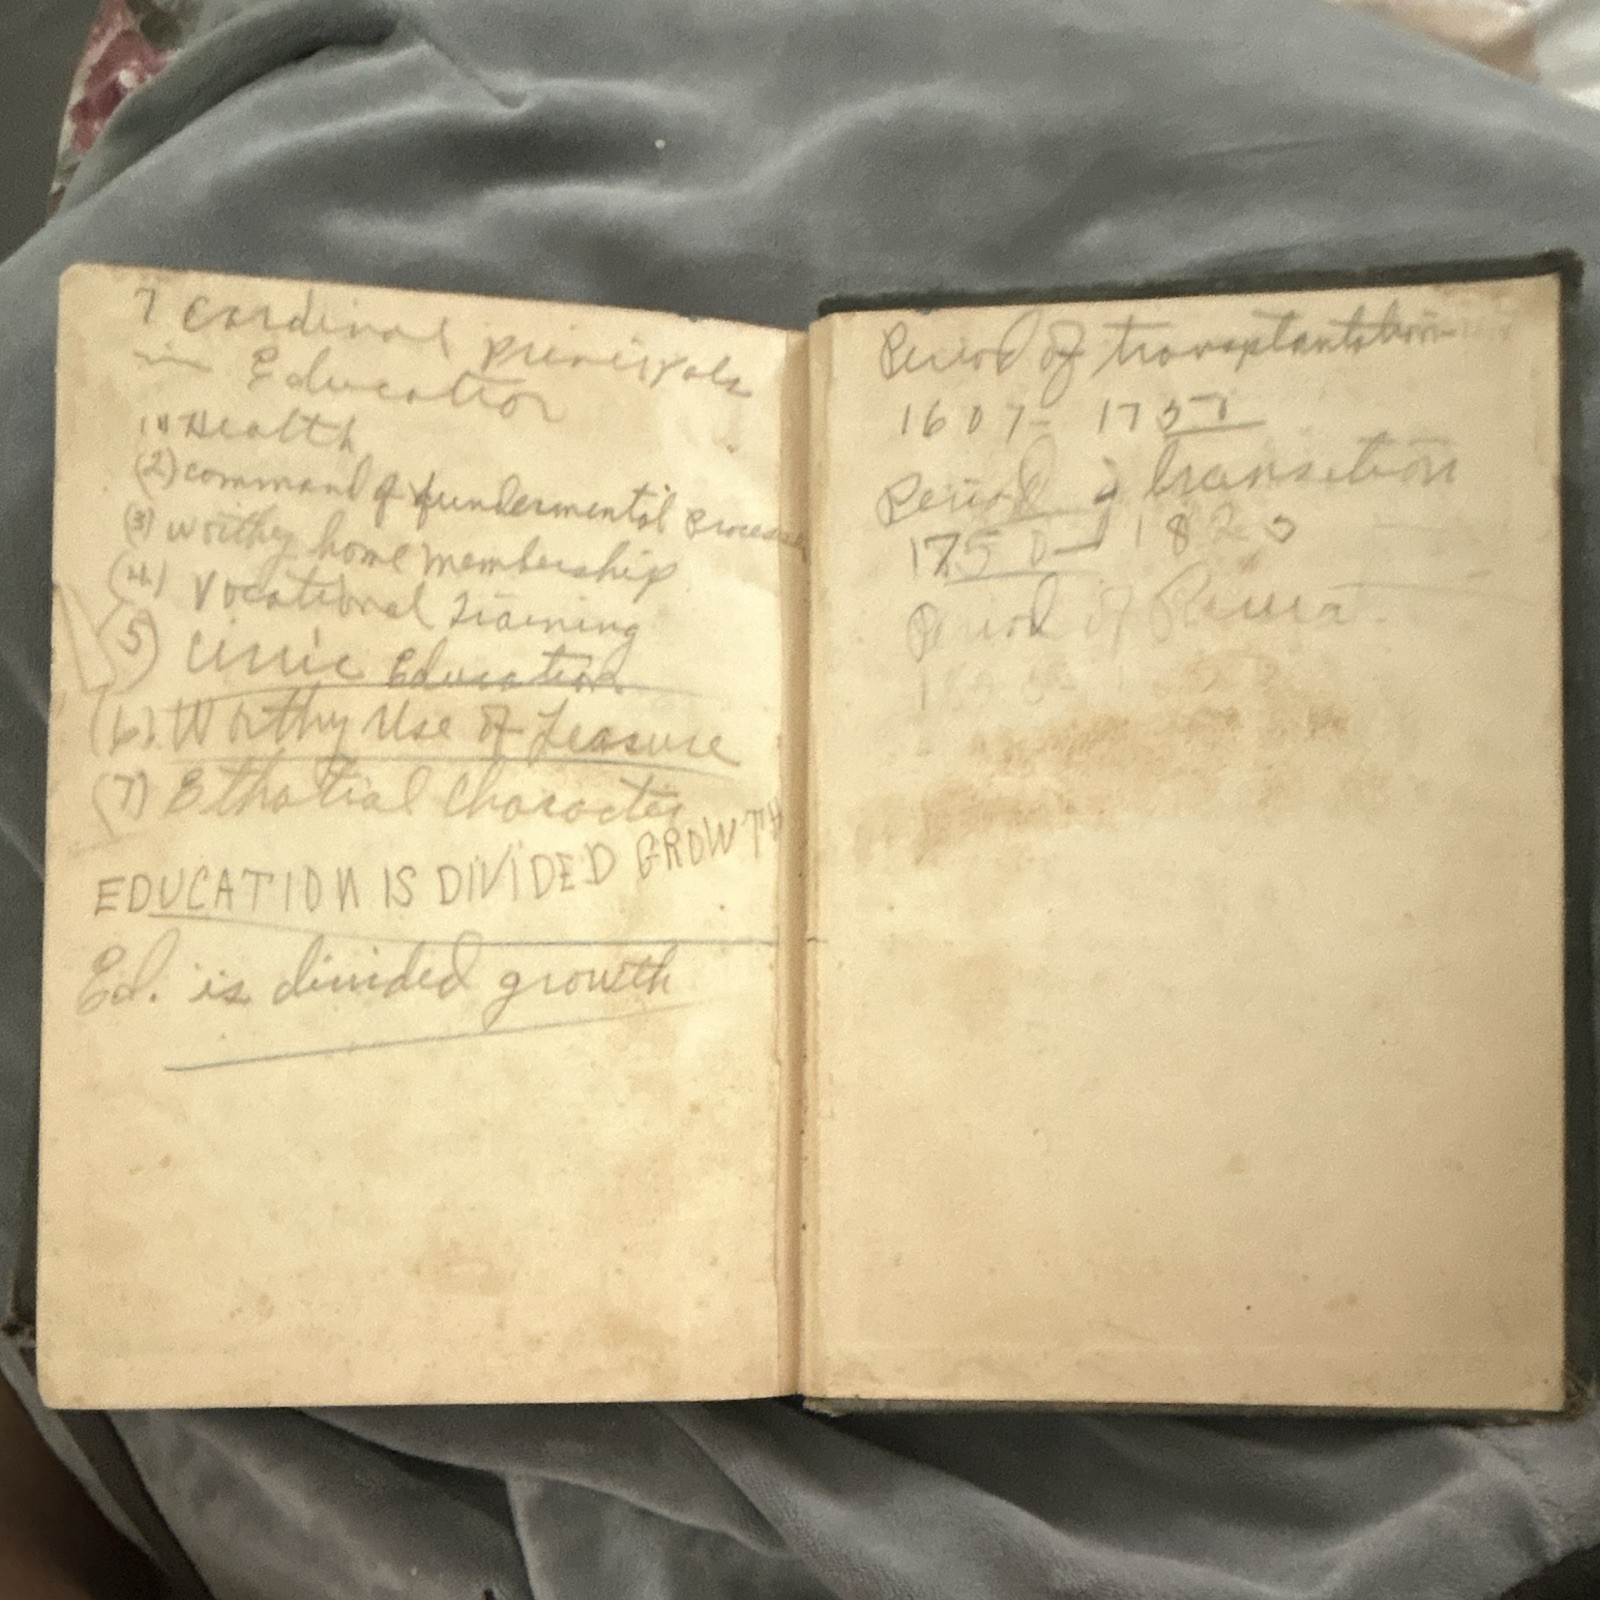 7 Cardinal principals
in Education
1) Health
(2) command of fundermental process
(3) worthy home membership
(4) Vocational Training
(5) Civic Education
(6) Worthy Use of Leasure
(7) Ethatial Character
EDUCATION IS DIVIDED GROWTH
Ed. is divided growth
Period of transplantation
1607 - 1757
Period of transition
1750 - 1820
Period of